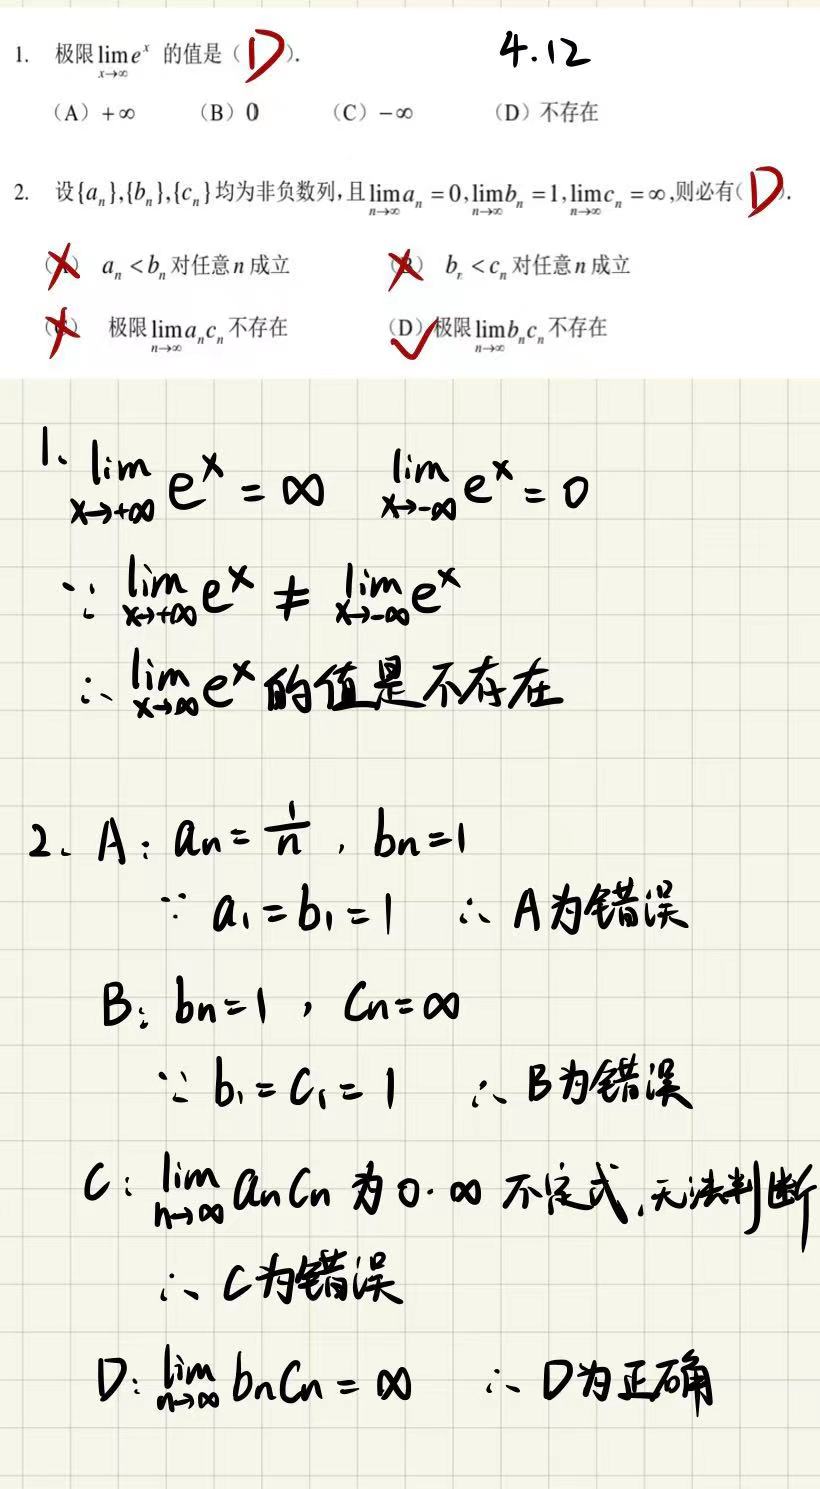 4.12
1. 极限 lim_{x→∞} e^x 的值是（D）.
（A）+∞ （B）0 （C）-∞ （D）不存在
2. 设{a_n},{b_n},{c_n}均为非负数列,且 lim_{n→∞} a_n = 0, lim_{n→∞} b_n = 1, lim_{n→∞} c_n = ∞,则必有（D）.
（A） a_n < b_n 对任意 n 成立 （B） b_n < c_n 对任意 n 成立
（C） 极限 lim_{n→∞} a_n c_n 不存在 （D）极限 lim_{n→∞} b_n c_n 不存在
1、 lim_{x→+∞} e^x = ∞ lim_{x→-∞} e^x = 0
∵ lim_{x→+∞} e^x ≠ lim_{x→-∞} e^x
∴ lim_{x→∞} e^x 的值是不存在
2、A: a_n = 1/n , b_n = 1
∵ a_1 = b_1 = 1 ∴ A为错误
B: b_n = 1 , C_n = ∞
∵ b_1 = C_1 = 1 ∴ B为错误
C: lim_{n→∞} a_n C_n 为 0·∞ 不定式,无法判断
∴ C为错误
D: lim_{n→∞} b_n C_n = ∞ ∴ D为正确